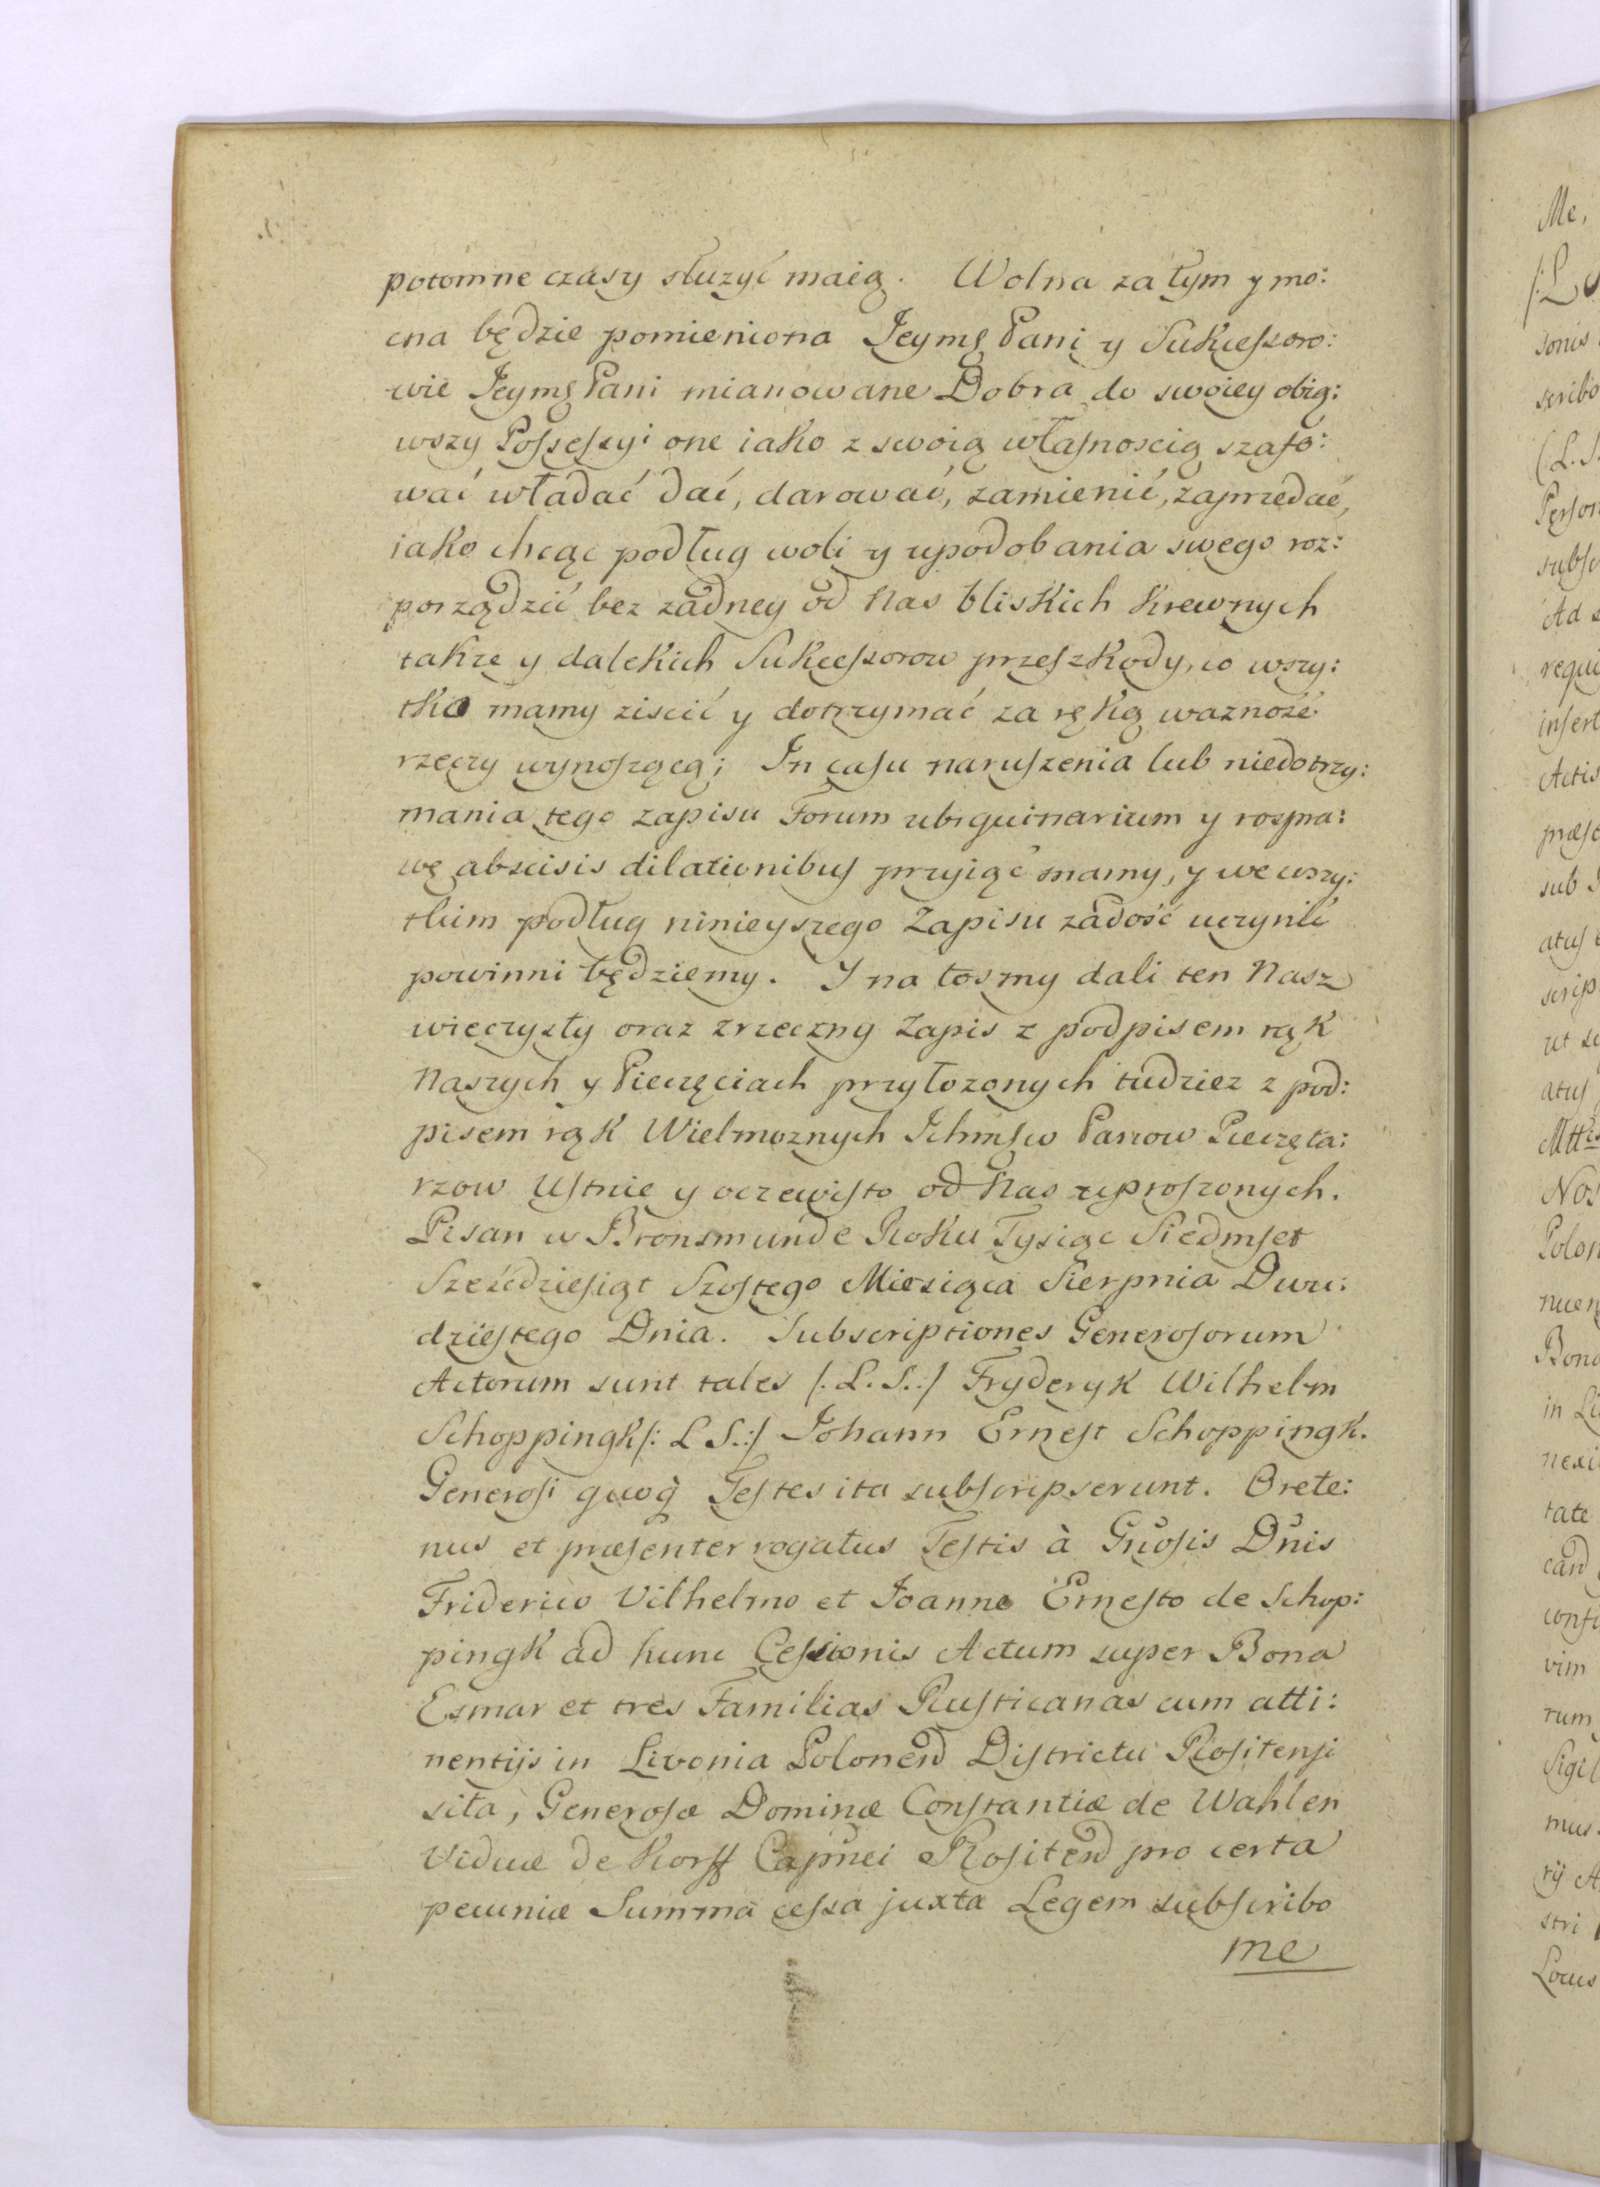 potomne czasy służyć maią. Wolna za tym y mo:
cna będzie pomieniona Jeymę Pani y Sukcessoro:
wie Jeymę Pani mianowane Dobra do swoiey obią:
wszy Possessyi one iako z swoią własnoscią szafo:
wać władać dać, darować, zamienić, zaprzedać,
iako chcąc podług woli y upodobania swego roz:
porządzić bez żadney od Nas bliskich Krewnych
także y dalekich Sukcessorow przeszkody, co wszy:
tko mamy ziscić y dotrzymać za ręką ważność
rzeczy wynoszącą; In casu naruszenia lub niedotrzy:
mania tego zapisu Forum ubiquinarium y rospra:
wę abscisis dilationibus przyiąć mamy, y we wszy:
tkim podług ninieyszego Zapisu zadość uczynić
powinni będziemy. Y na tosmy dali ten Nasz
wieczysty oraz zrzeczny Zapis z podpisem rąk
Naszych y Pieczęciach przyłożonych tudziez z pod:
pisem rąk Wielmoznych Ichmsw Panow Pieczęta:
rzow Ustnie y oczewisto od Nas uproszonych.
Pisan w Bronsmunde Roku Tysiąc Siedmset
Sześćdziesiąt Szostego Miesiąca Sierpnia Dwu:
dziestego Dnia. Subscriptiones Generosorum
Actorum sunt tales /:L.S.:/ Fryderyk Wilhelm
Schoppingk /: L S.:/ Johann Ernest Schoppingk.
Generosi quoq̀ Testes ita subscripserunt. Orete:
nus et præsenter rogatus Testis à Gnosis Dnis
Friderico Vilhelmo et Joanne Ernesto de Schop:
pingk ad hunc Cessionis Actum super Bona
Esmar et tres Familias Rusticanas cum atti:
nentijs in Livonia Polonen Districtu Rositensi
sita, Generosæ Dominæ Constantiæ de Wahlen
Viduæ de Korff Capnei Rositen pro certa
pecuniæ Summa cessa juxta Legem subscribo
me